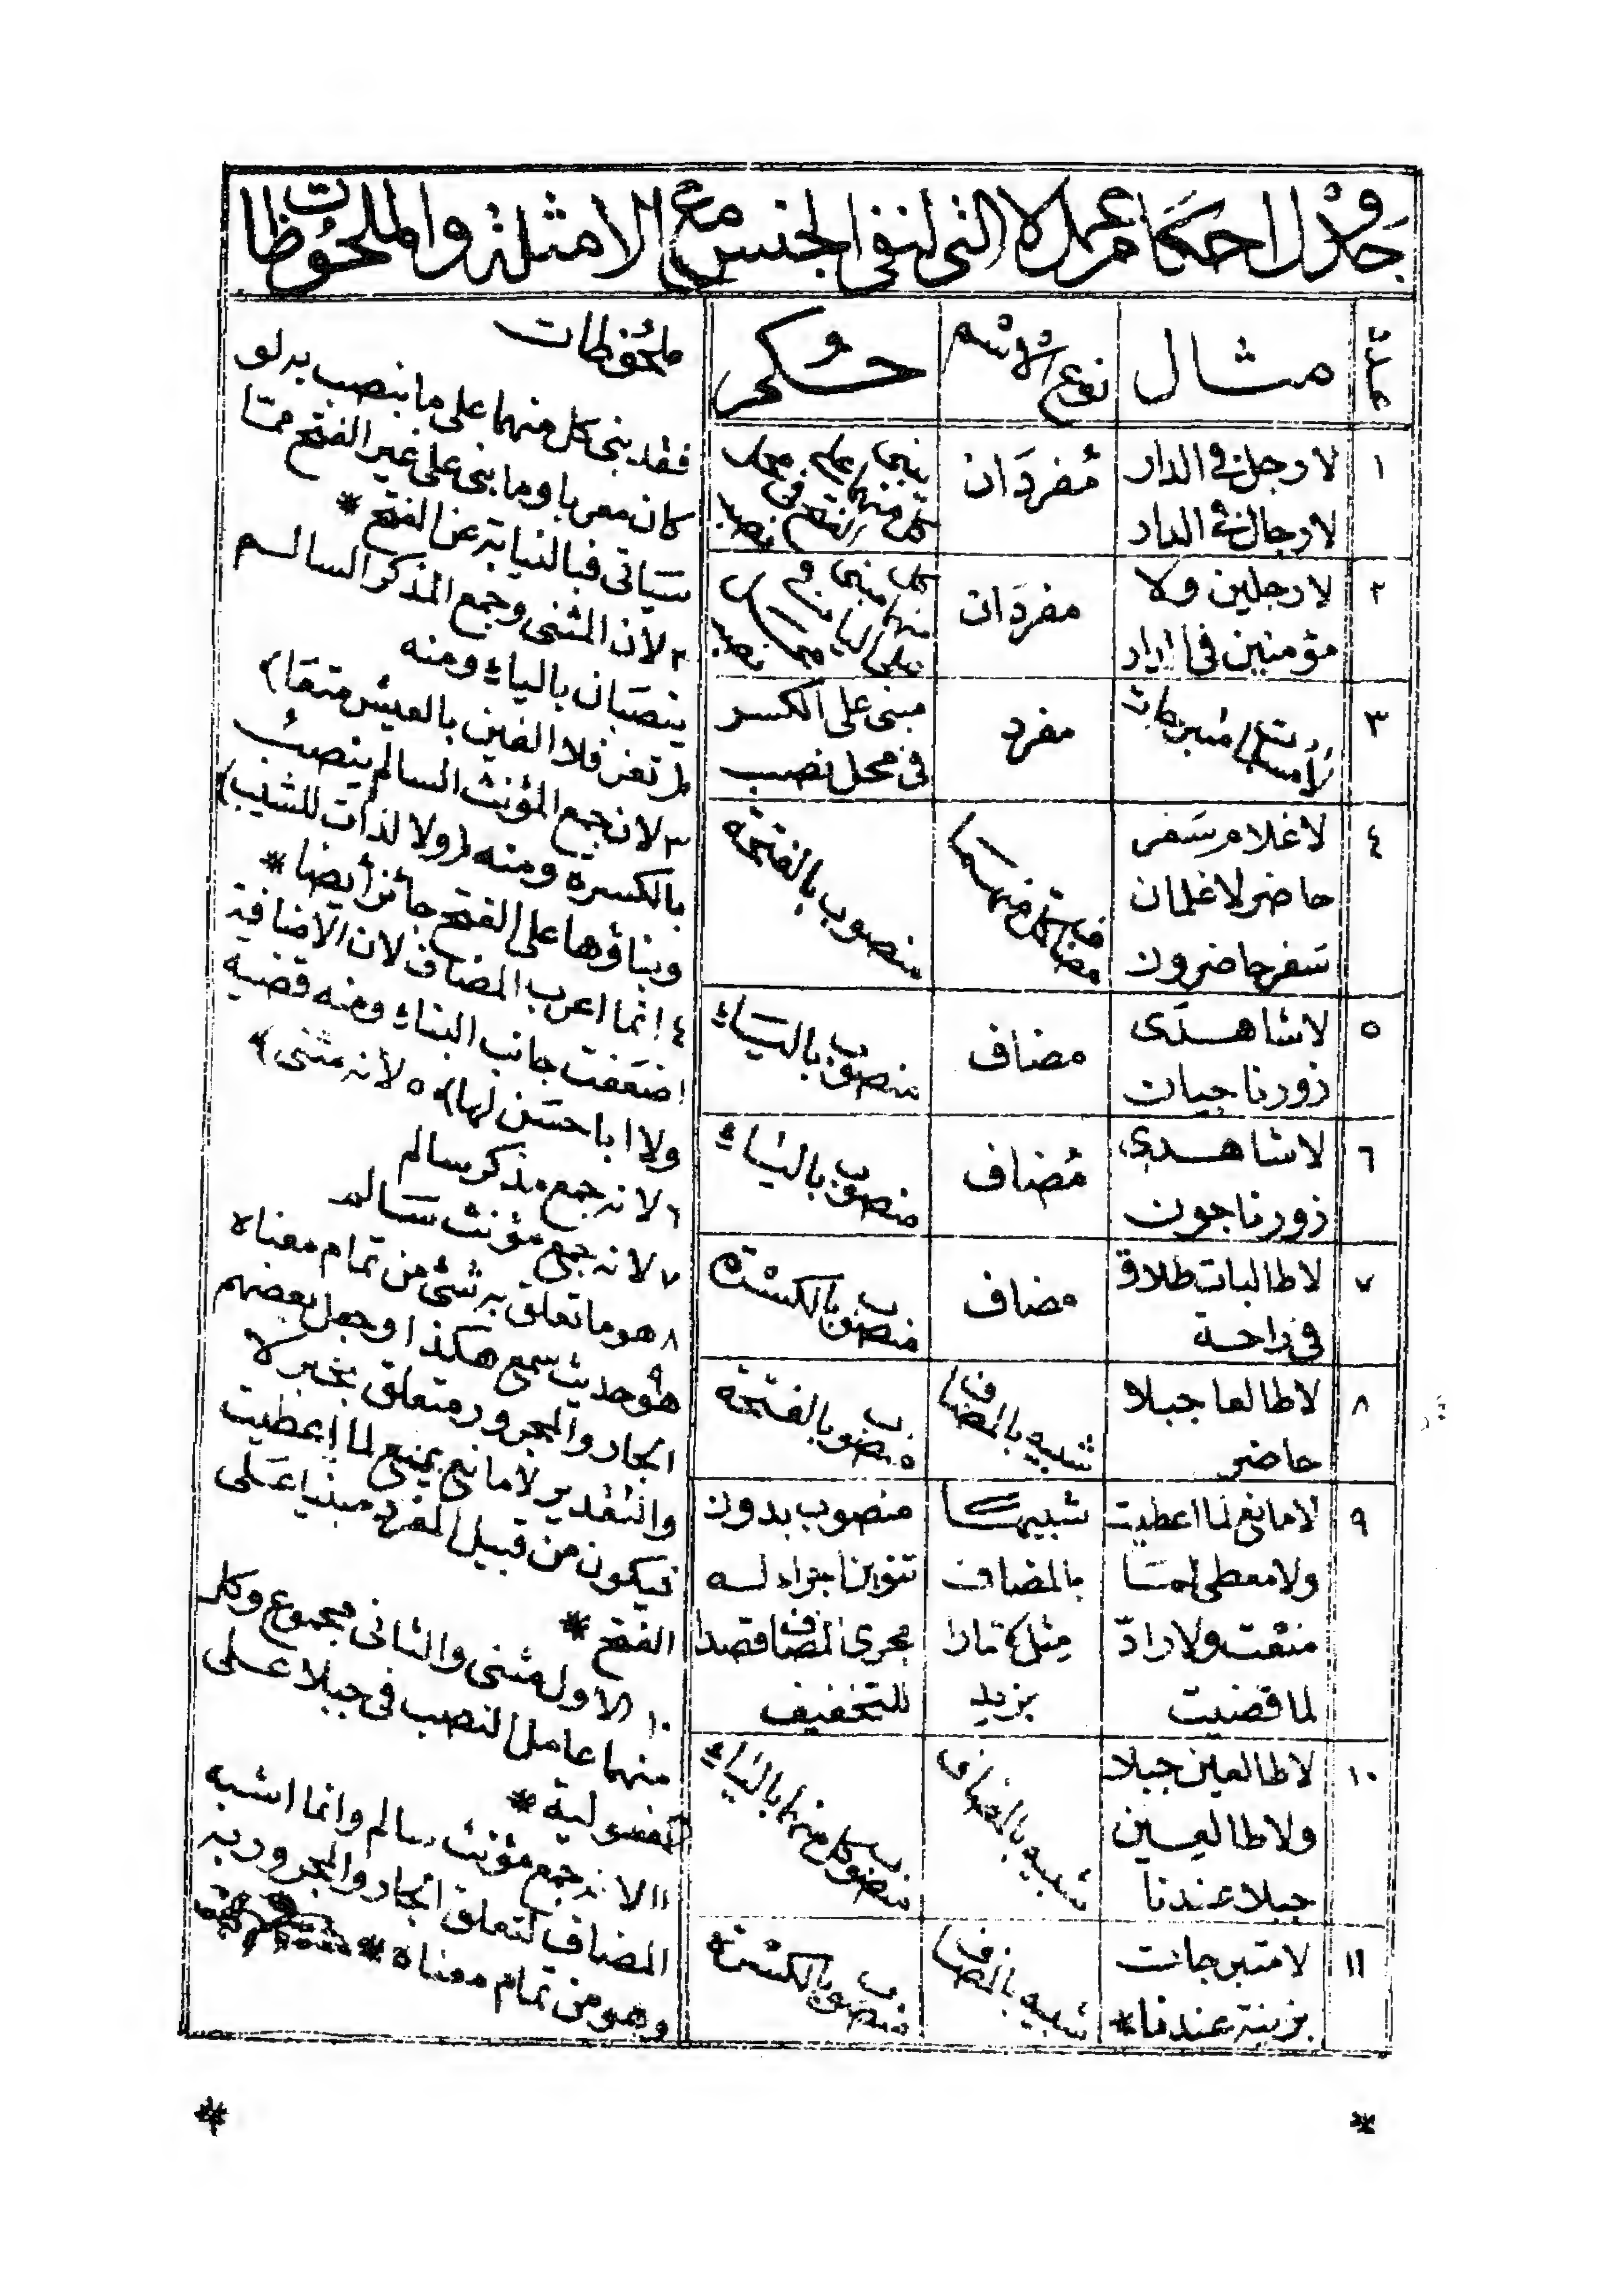 جدول احكام عمل لا التى لنفى الجنس مع الامثلة والملحوظات
عدد
مثال
نوع الاسم
حكم
ملحوظات
١
لا رجل فى الدار
لا رجال فى الدار
مُفردَان
يبنى كل منهما على الفتح فى محل نصب
٢
لا رجلين ولا
مؤمنين فى الدار
مفردَان
كل منهما مبنى على الياء فى محل نصب
٣
لا مسلمات متبرجات
مفرد
مبنى على الكسر
فى محل نصب
٤
لا غلام سَفر
حاضر لا غلمان
سَفر حاضرون
مضاف كل منهما
منصوب بالفتحة
٥
لا شاهدَى
زور ناجيان
مضاف
منصوب باليَاء
٦
لا شاهدى
زور ناجون
مُضاف
منصوب باليَاء
٧
لا طالبات طلاق
فى راحة
مضاف
منصوب بالكسْرة
٨
لا طالعا جبلا
حاضر
شبيه بالمضاف
منصوب بالفتحة
٩
لا مانع لما اعطيت
ولا معطى لمَا
منعت ولا رادّ
لما قضيت
شبيه
بالمضاف
مثل مارا
بزيد
منصوب بدون
تنوين اجراء له
مجرى المضاف قصدا
للتخفيف
١٠
لا طالعين جبلا
ولا طالعين
جبلا عندنا
شبيه بالمضاف
منصوب كل منهما بالياء
١١
لا متبرجات
بزينة عندنا *
شبيه بالمضاف
منصوب بالكسرة
فقد بنى كل منهما على ما ينصب به لو
كان معربا وما بنى على غير الفتح ممّا
سَيَاتى فبالنيابة عن الفتح *
٢ لأن المثنى وجمع المذكر السالم
ينصبَان بالياء ومنه
(تعز فلا الفين بالعيش متعَا)
٣ لان جمع المؤنث السالم ينصبُ
بالكسرة ومنه (ولا لذات للشيب)
وبناؤها على الفتح جائز أيضا *
٤ انما اعرب المضاف لان الاضافة
اضعَفت جانب البناء ومنه قضية
ولا ابا حسَن لها) ٥ لأنه مثنى)
٦ لانه جمع مذكر سالم
٧ لانه جمع مؤنث سَالم
٨ هو ما تعلق به شئ من تمام معناه
٩ هو حديث سمع هكذا وجعل بعضهم
الجار والمجرور متعلق بخبر لا
والتقدير لا مانع يمنع لما اعطيت
فيكون من قبيل المفرد مبنيا عَلى
الفتح *
١٠ الاول مثنى والثانى مجموع وكل
منهما عامل النصب فى جبلا على
المفعولية *
١١ لانه جمع مؤنث سالم وانما اشبه
المضاف لتعلق الجار والمجرور به
وهو من تمام معناه *
* *